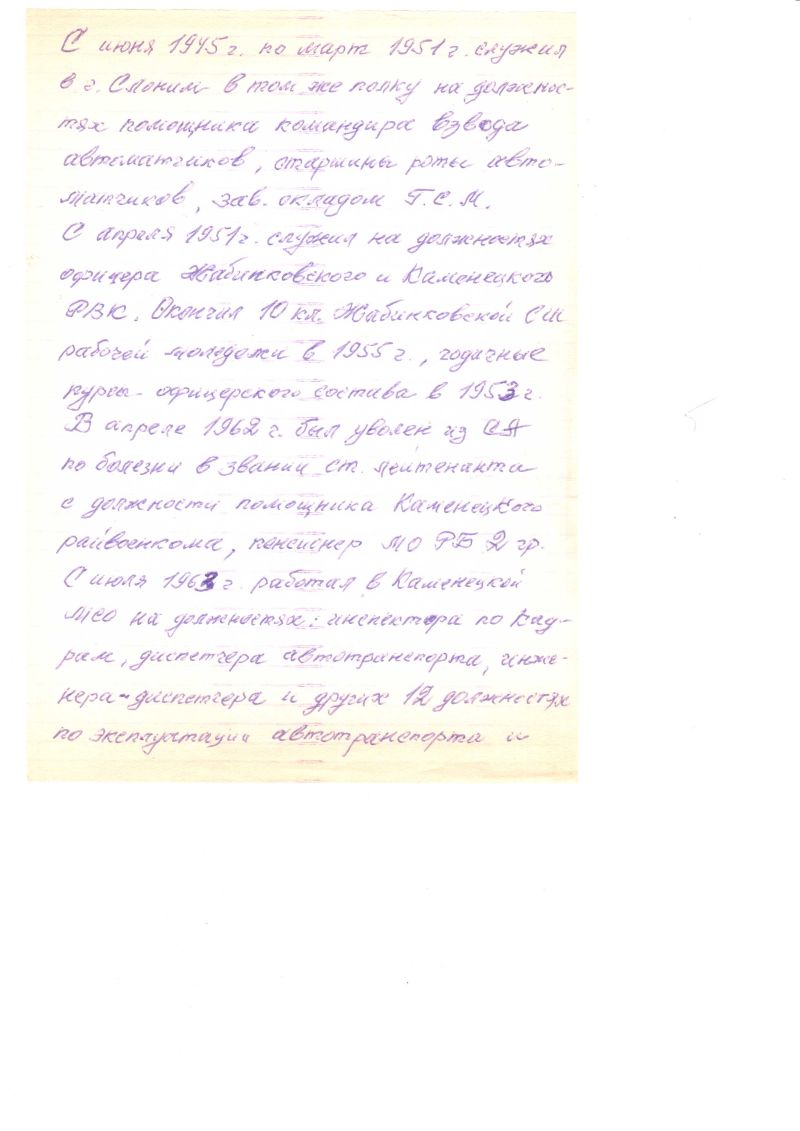 С июня 1945 г. по март 1951 г. служил
в г. Слоним в том же полку на должнос-
тях помощника командира взвода
автоматчиков, старшины роты авто-
матчиков, зав. складом Г.С.М.
С апреля 1951 г. служил на должностях
офицера Жабинковского и Каменецкого
РВК. Окончил 10 кл. Жабинковской СШ
рабочей молодежи в 1955 г., годичные
курсы офицерского состава в 1953 г.
В апреле 1962 г. был уволен из СА
по болезни в звании ст. лейтенанта
с должности помощника Каменецкого
райвоенкома, пенсионер МО РБ 2 гр.
С июля 1963 г. работал в Каменецкой
МСО на должностях: инспектора по кад-
рам, диспетчера автотранспорта, инже-
нера-диспетчера и других 12 должностях
по эксплуатации автотранспорта и